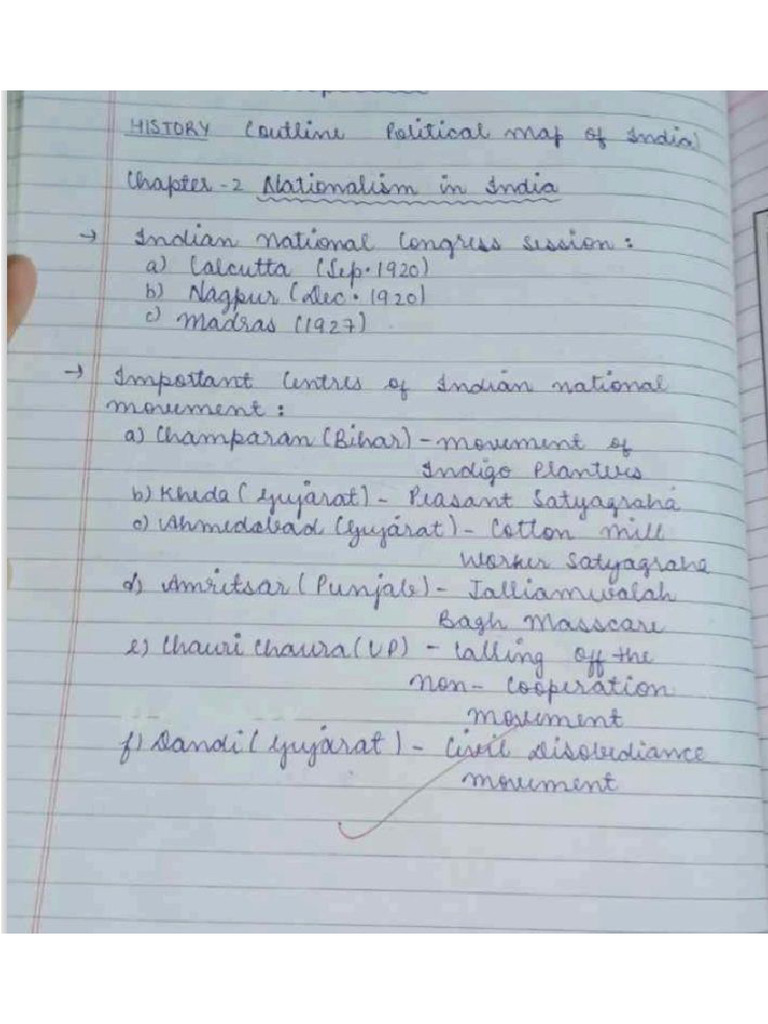 HISTORY (Outline Political Map of India)
Chapter-2 Nationalism in India
→ Indian National Congress Session :
a) Calcutta (Sep. 1920)
b) Nagpur (Dec. 1920)
c) Madras (1927)
→ Important Centres of Indian national
movement :
a) Champaran (Bihar) - movement of
Indigo Planters
b) Kheda (Gujarat) - Peasant Satyagraha
c) Ahmedabad (Gujarat) - Cotton mill
Worker Satyagraha
d) Amritsar (Punjab) - Jallianwalah
Bagh Masscare
e) Chauri Chaura (UP) - Calling off the
non-cooperation
movement
f) Dandi (Gujarat) - Civil Disobediance
movement